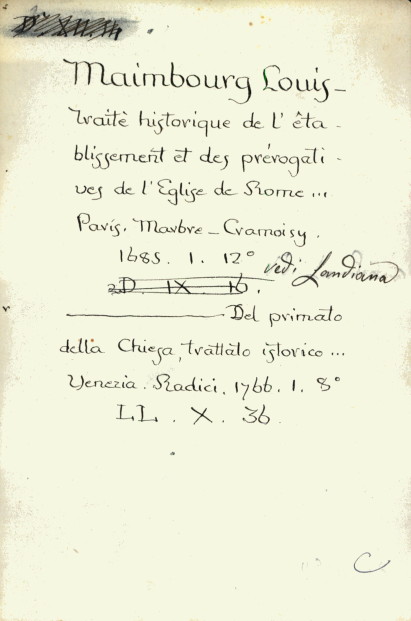 Maimbourg Louis —
Traité historique de l' éta -
blissement et des prérogati -
ves de l'Eglise de Rome ...
Paris, Marbre - Cramoisy.
1685. 1. 12° vedi Landiana
D. IX. 16.
Del primato
della Chiesa, trattato istorico ...
Venezia. Radici. 1766. 1. 8°
LL. X. 36.
C